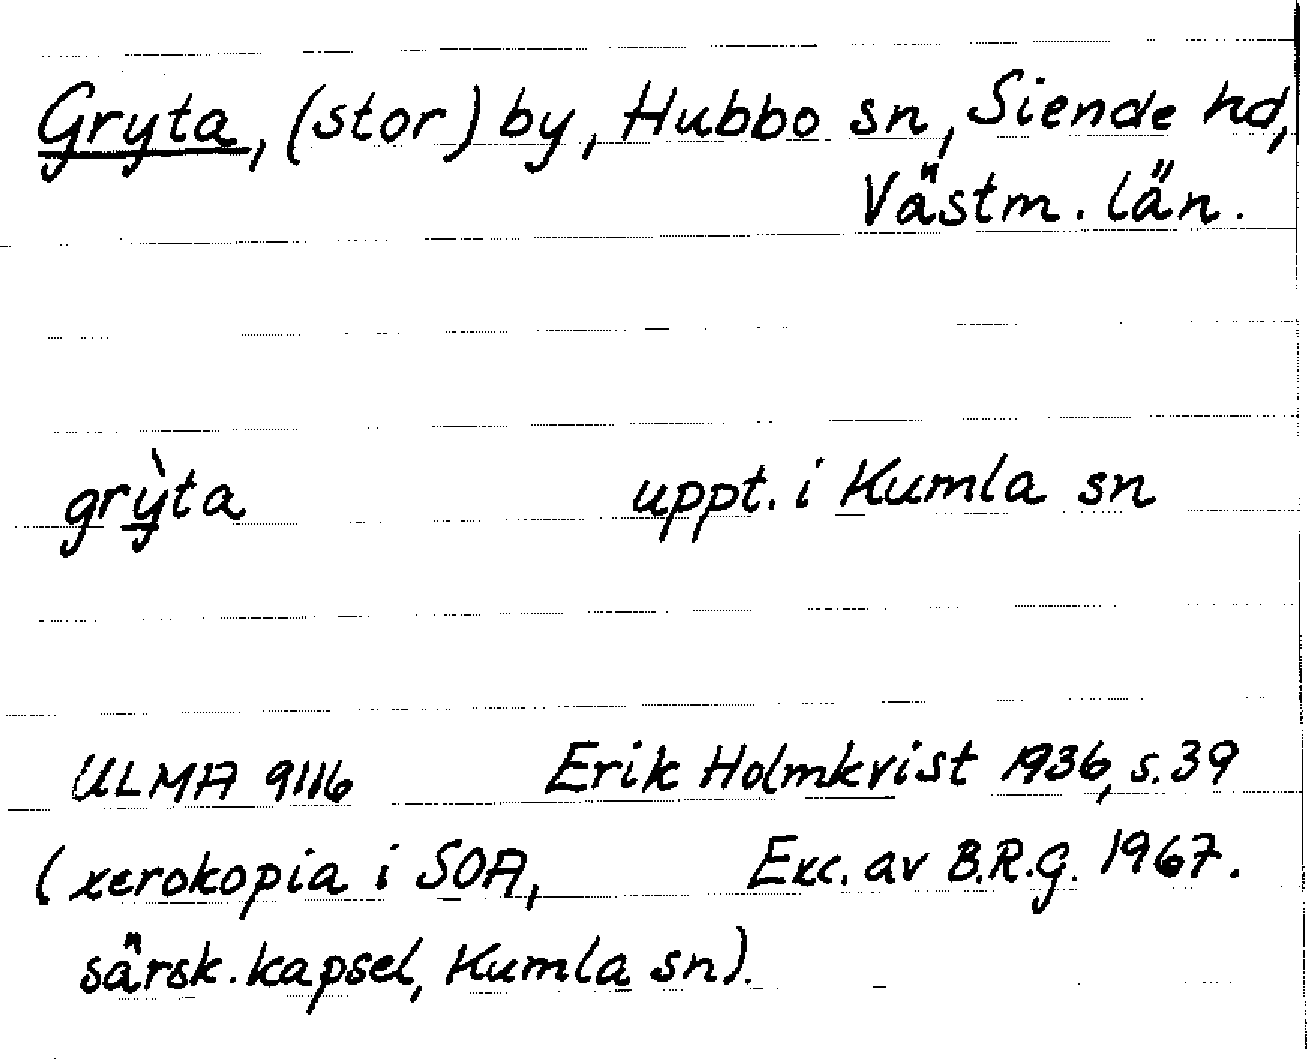 Gryta, (stor) by, Hubbo sn, Siende hd,
Västm. län.
grỳta uppt. i Kumla sn
ULMA 9116 Erik Holmkvist 1936, s. 39
(xerokopia i SOA, Exc. av B.R.G. 1967.
särsk. kapsel, Kumla sn).